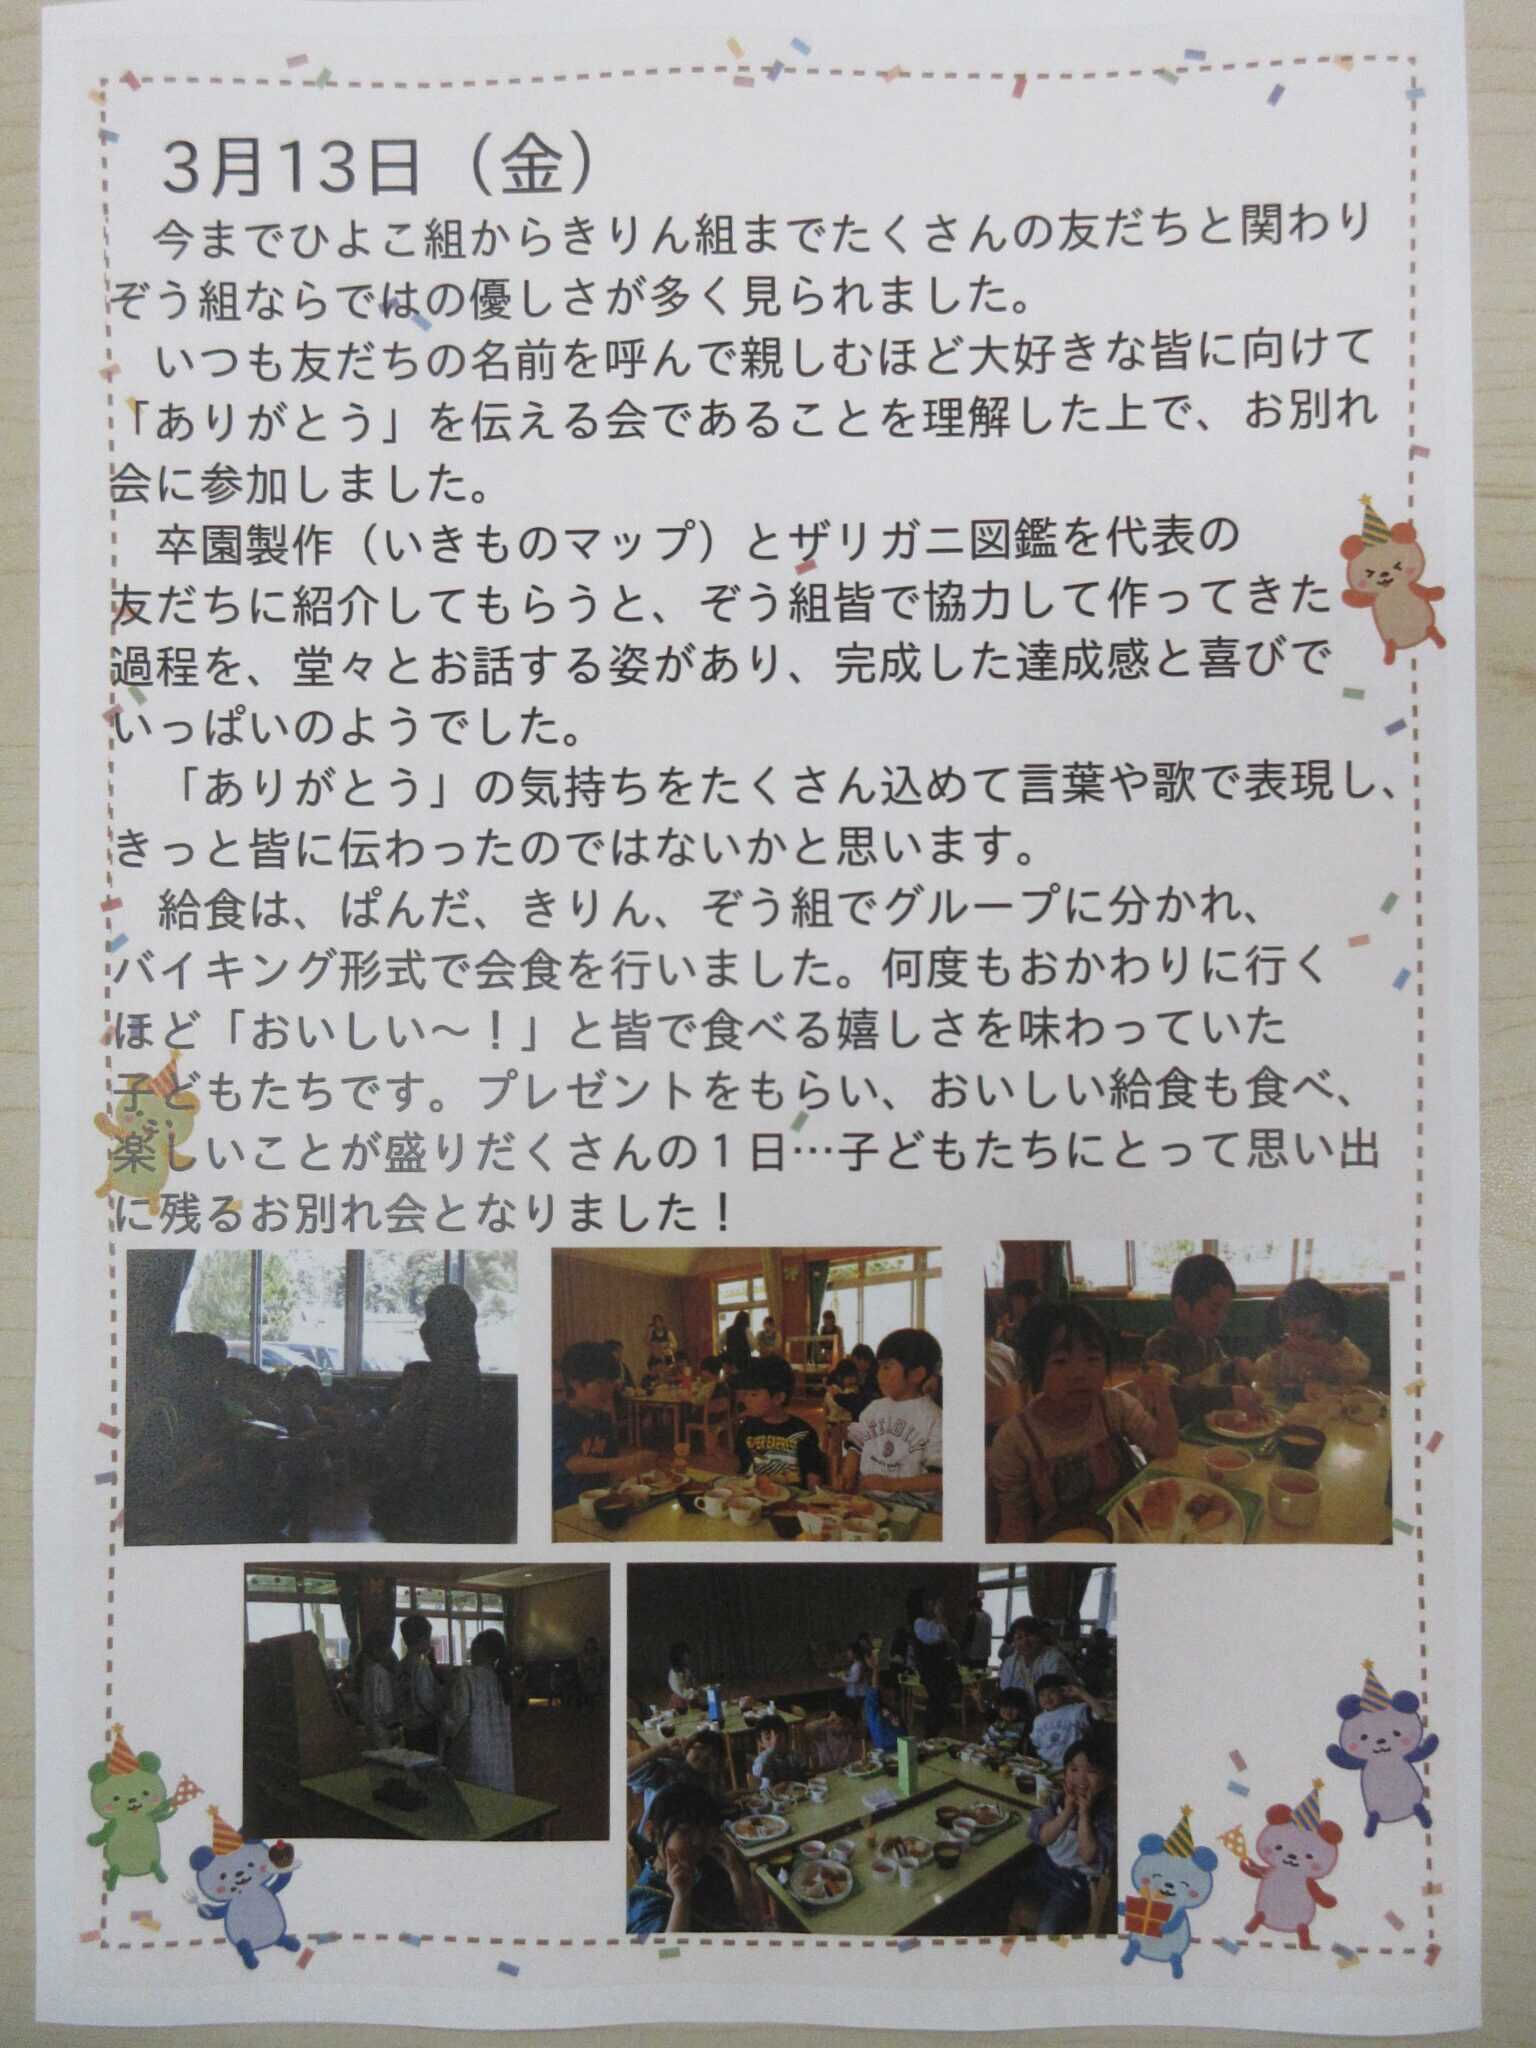 3月13日（金）
今までひよこ組からきりん組までたくさんの友だちと関わり
ぞう組ならではの優しさが多く見られました。
いつも友だちの名前を呼んで親しむほど大好きな皆に向けて
「ありがとう」を伝える会であることを理解した上で、お別れ
会に参加しました。
卒園製作（いきものマップ）とザリガニ図鑑を代表の
友だちに紹介してもらうと、ぞう組皆で協力して作ってきた
過程を、堂々とお話する姿があり、完成した達成感と喜びで
いっぱいのようでした。
「ありがとう」の気持ちをたくさん込めて言葉や歌で表現し、
きっと皆に伝わったのではないかと思います。
給食は、ぱんだ、きりん、ぞう組でグループに分かれ、
バイキング形式で会食を行いました。何度もおかわりに行く
ほど「おいしい～！」と皆で食べる嬉しさを味わっていた
子どもたちです。プレゼントをもらい、おいしい給食も食べ、
楽しいことが盛りだくさんの１日…子どもたちにとって思い出
に残るお別れ会となりました！